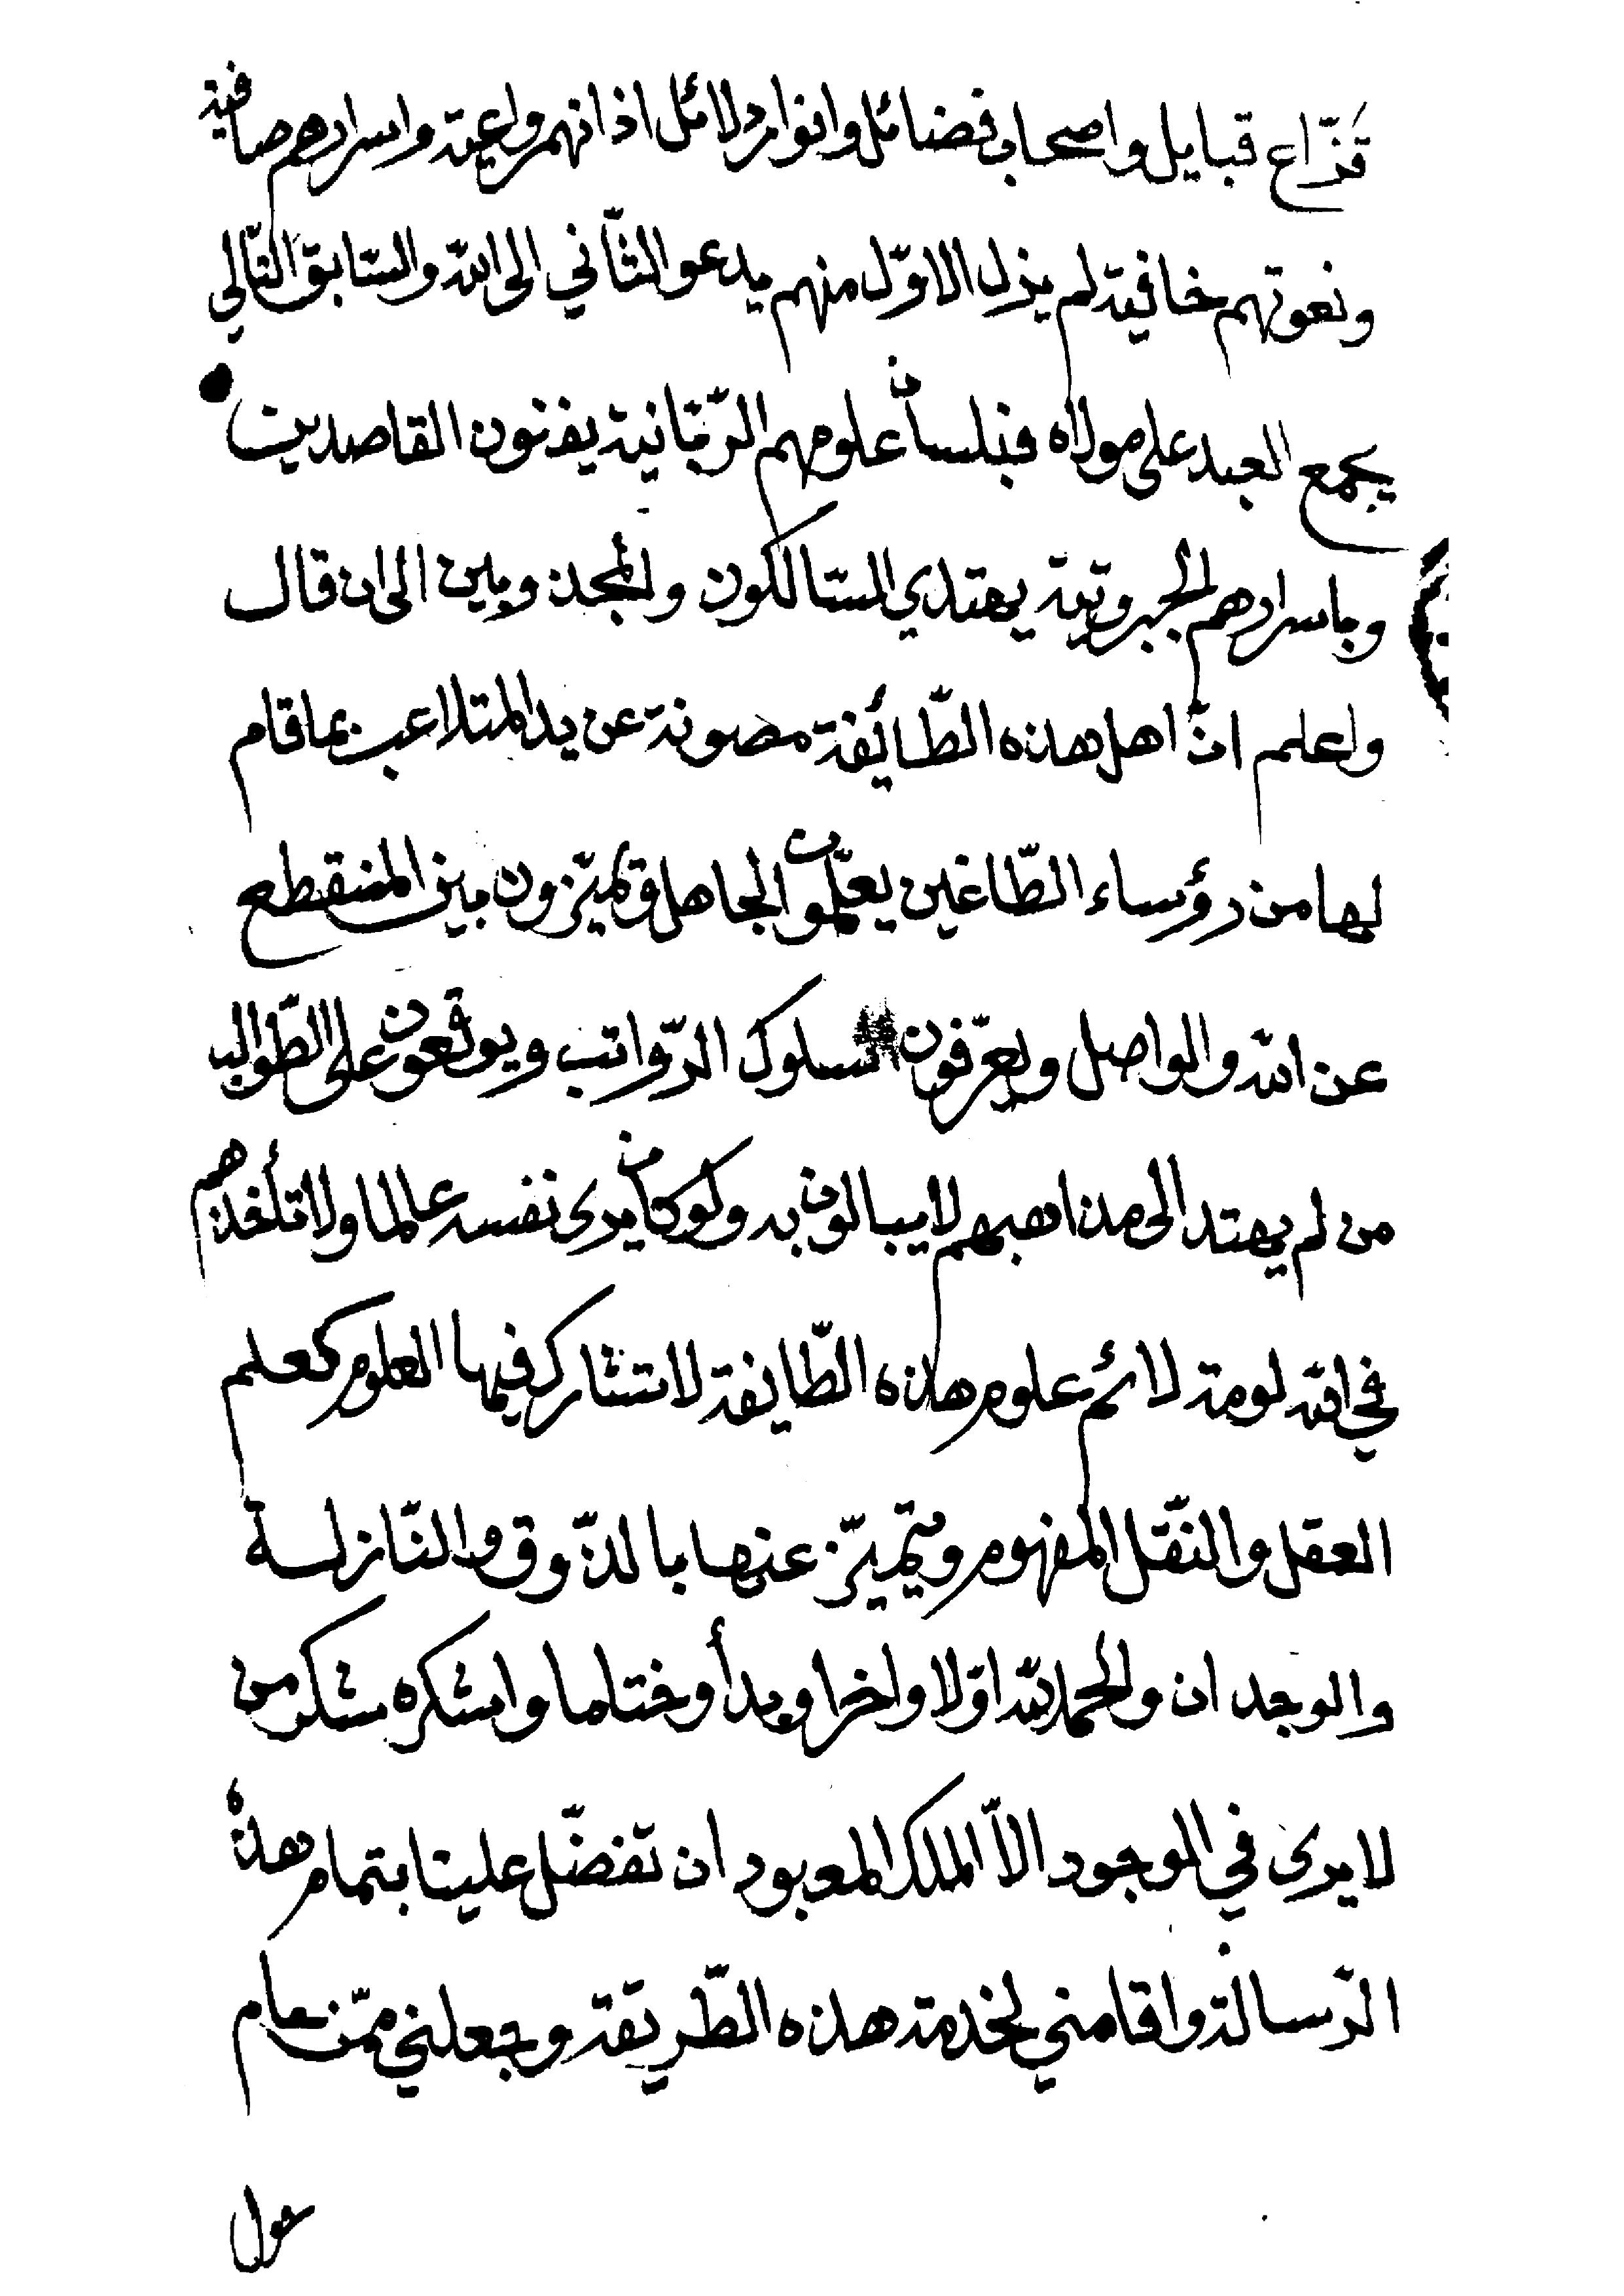 قزّاع قبايل واصحاب فضائل وانوار دلائل اذانهم واعية واسرارهم صافية
ونعوتهم خافية لم يزل الاوّل منهم يدعو الثّاني الى الله والسّابق التّالي
يجمع العبد على مولاه فبلسان علومهم الرّبّانية يفنون القاصدين
وباسرارهم الجبروتية يهتدي السّالكون والمجذوبين الى ان قال
واعلم انّ اهل هذه الطّائفة مصونة عن يد المتلاعب بما قام
لها من رؤساء الطّاغين يعلّمون الجاهل ويميّزون بين المنقطع
عن الله والواصل ويعرّفون سلوك الرّواتب ويوقعون على الطّوالب
من لم يهتد الى مذاهبهم لا يبالون به ولو كان يرى نفسه عالما ولا تأخذهم
في الله لومة لائم علوم هذه الطّايفة لا تتشارك فيها العلوم كعلم
العقل والنّقل المفهوم ويتميّز عنها بالذّوق والنّازلة
والوجدان والحمد لله اوّلا واخرا وبدأ وختاما واشكره شكر من
لا يرى في الوجود الاّ الملك المعبود ان تفضّل علينا بتمام هذه
الرّسالة واقامني لخدمة هذه الطّريقة وجعلني ممّن عام
حول